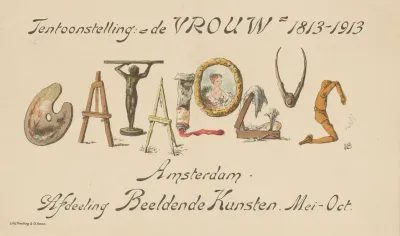 Tentoonstelling: = de VROUW = 1813-1913
CATALOGUS
Amsterdam.
Afdeeling Beeldende Kunsten. Mei-Oct.